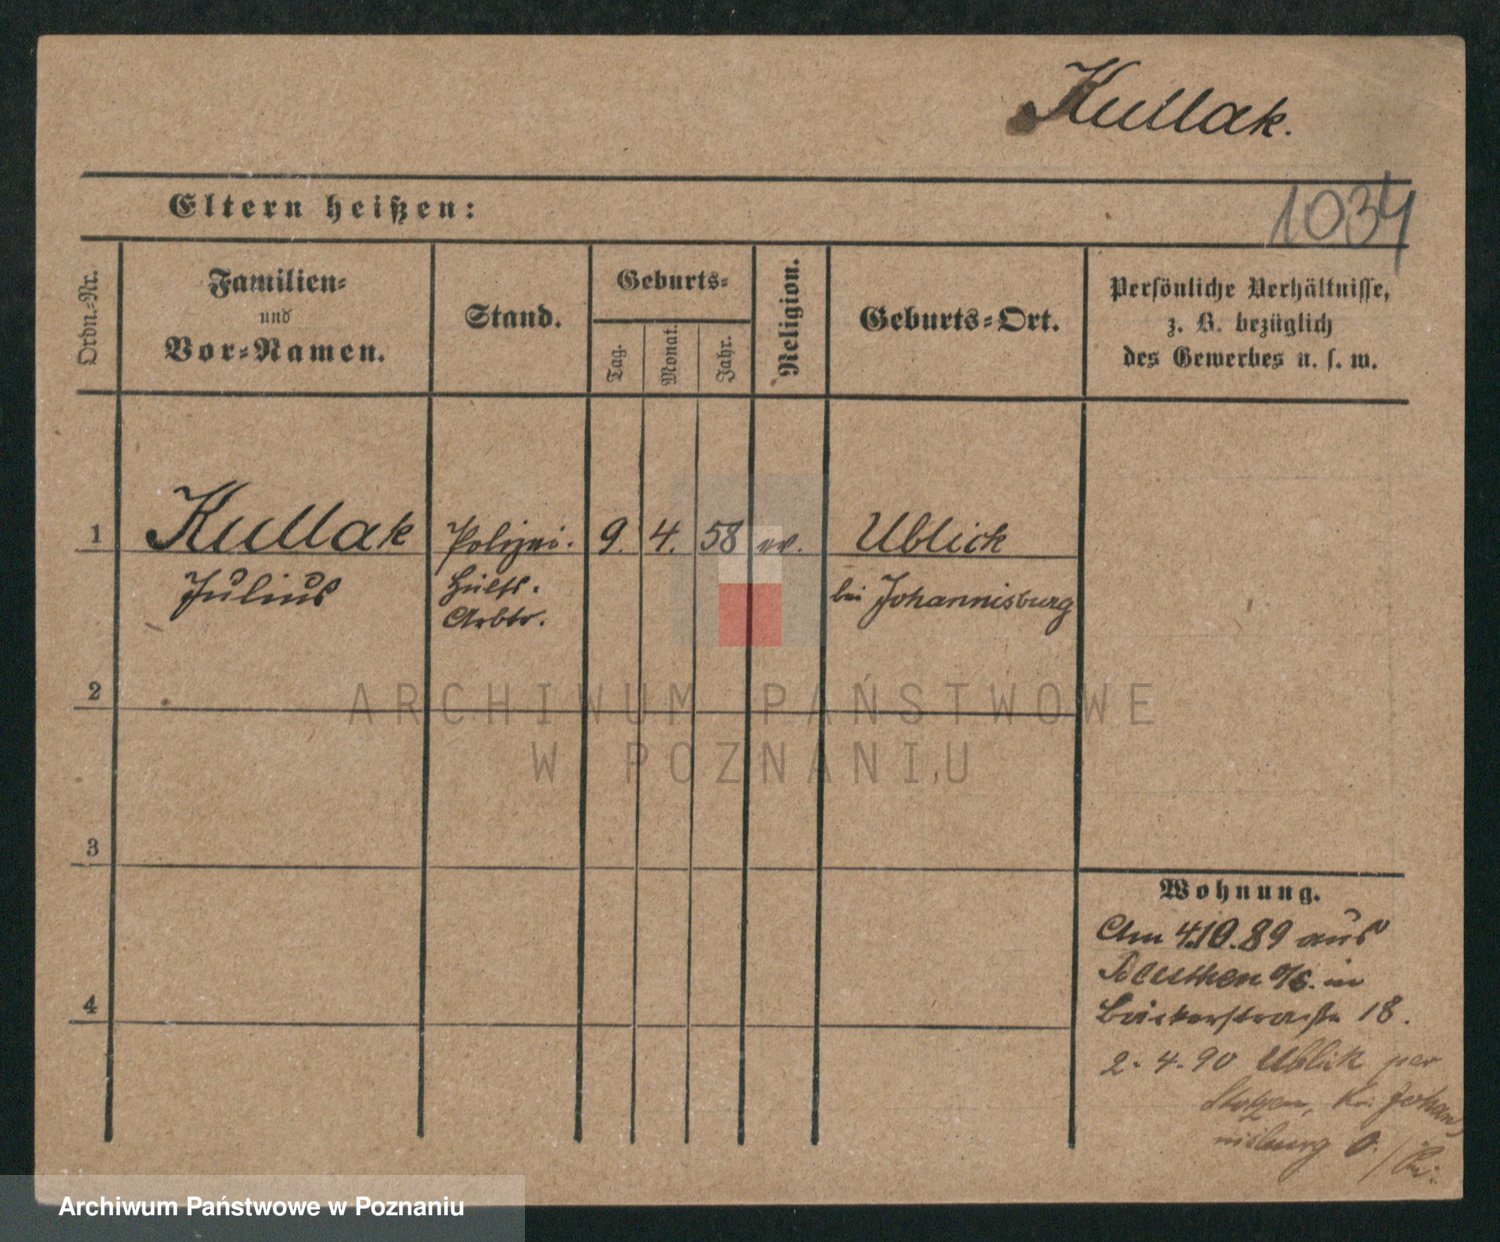 Kullak.
1034
Eltern heißen:
Ordn.-Nr.
Familien-
und
Vor-Namen.
Stand.
Geburts-
Tag.
Monat.
Jahr.
Religion.
Geburts-Ort.
Persönliche Verhältnisse,
z. B. bezüglich
des Gewerbes u. s. w.
1 Kullak Polizei- 9. 4. 58 ev. Ublick
Julius Hülfs- bei Johannisburg
Arbtr.
2
ARCHIWUM PAŃSTWOWE
W POZNANIU
3
Wohnung.
Am 4.10.89 aus
Beuthen o/S. in
Bäckerstraße 18.
4
2-4-90 Ublik per
Kr. Johan
nisburg O.
Archiwum Państwowe w Poznaniu